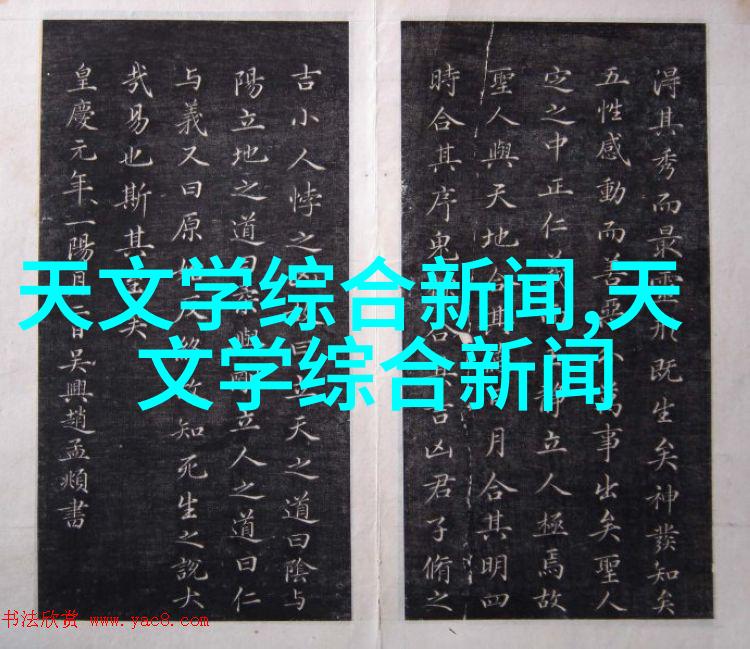 淂其秀而最靈形既生矣神發知矣
五性感動而善惡 萬事出矣聖人
定之中正仁義 静立人極焉故
聖人與天地合其 月合其明四
時合其序鬼 合其吉凶君子脩之
吉小人悖之 曰立天之道曰陰与
陽立地之道曰柔與剛立人之道曰仁
与義又曰原始反終故知死生之說大
哉易也斯其至矣
皇慶元年一陽月 日吴興趙孟頫書
天文学综合新闻,天
文学综合新闻
书法欣赏 www.yac8.com